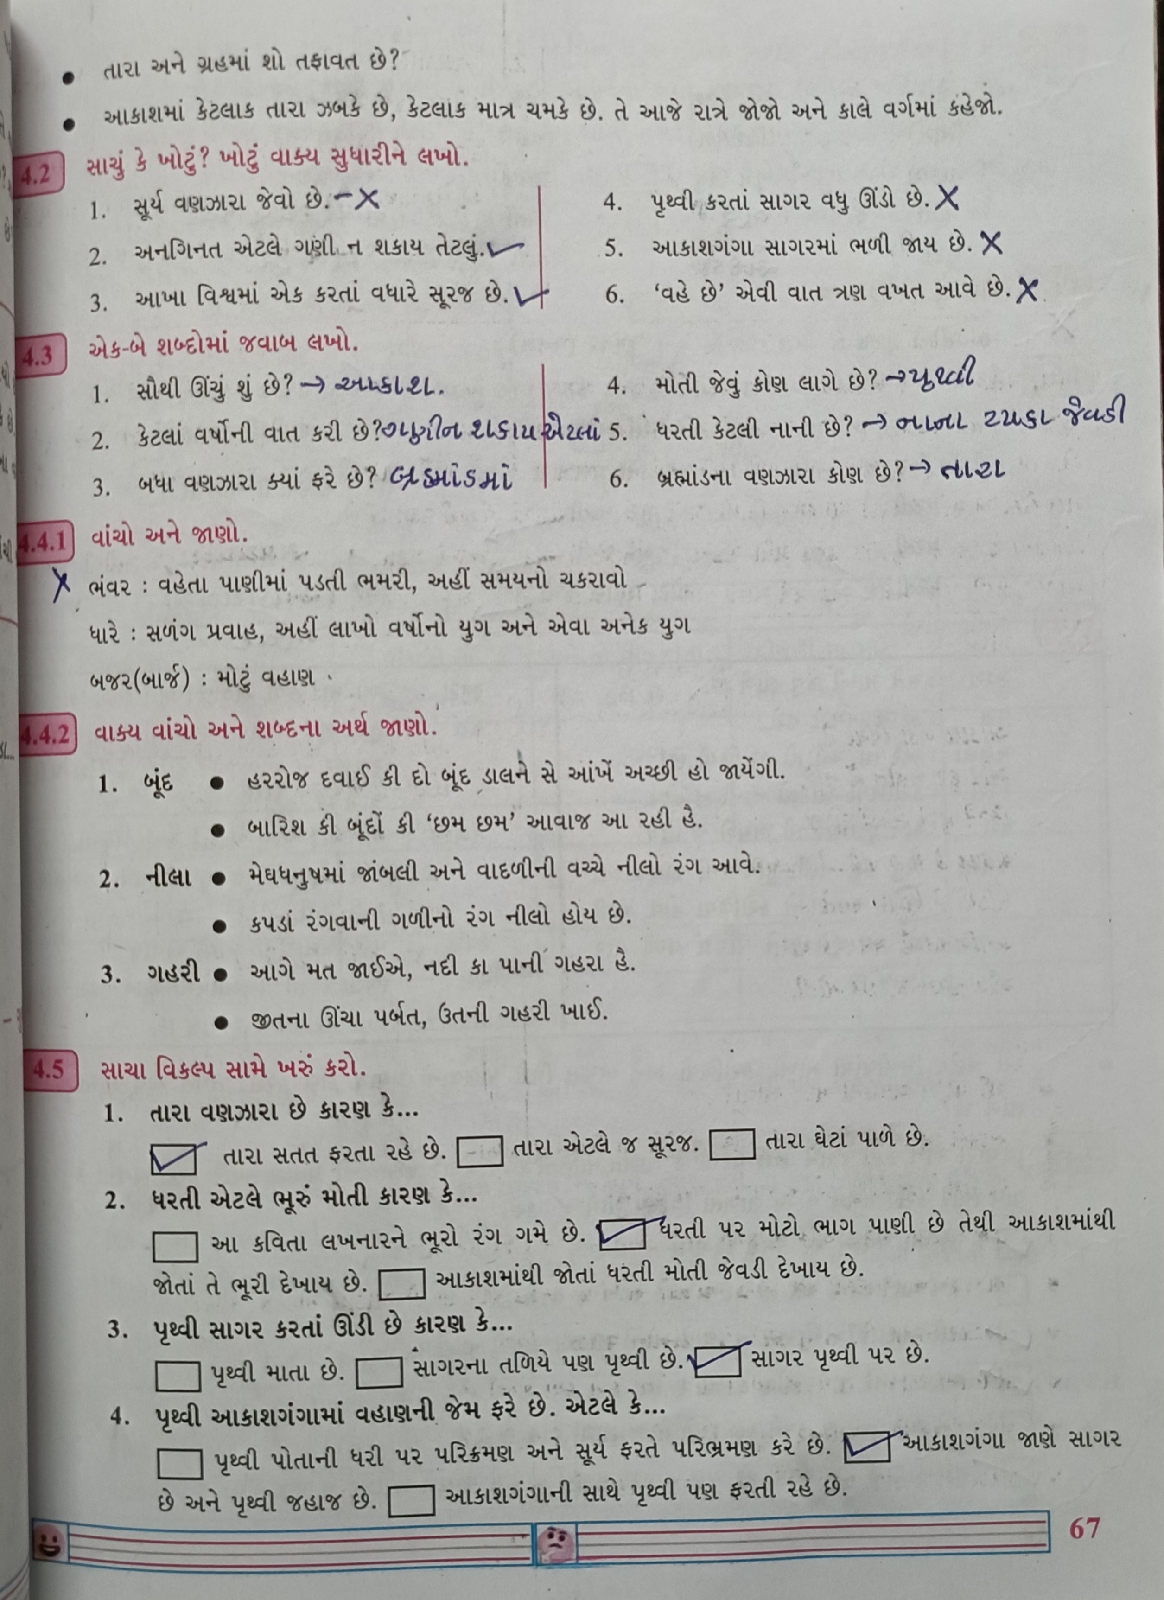 તારા અને ગ્રહમાં શો તફાવત છે?
આકાશમાં કેટલાક તારા ઝબકે છે, કેટલાંક માત્ર ચમકે છે. તે આજે રાત્રે જોજો અને કાલે વર્ગમાં કહેજો.
4.2 સાચું કે ખોટું? ખોટું વાક્ય સુધારીને લખો.
1. સૂર્ય વણઝારા જેવો છે. – ✗
2. અનગિનત એટલે ગણી ન શકાય તેટલું. ✓
3. આખા વિશ્વમાં એક કરતાં વધારે સૂરજ છે. ✓
4. પૃથ્વી કરતાં સાગર વધુ ઊંડો છે. ✗
5. આકાશગંગા સાગરમાં ભળી જાય છે. ✗
6. ‘વહે છે’ એવી વાત ત્રણ વખત આવે છે. ✗
4.3 એક-બે શબ્દોમાં જવાબ લખો.
1. સૌથી ઊંચું શું છે? → આકાશ.
2. કેટલાં વર્ષોની વાત કરી છે? ગણીન શકાય એટલાં
3. બધા વણઝારા ક્યાં ફરે છે? બ્રહ્માંડમાં
4. મોતી જેવું કોણ લાગે છે? → પૃથ્વી
5. ધરતી કેટલી નાની છે? → નાના ટપકા જેવડી
6. બ્રહ્માંડના વણઝારા કોણ છે? → તારા
4.4.1 વાંચો અને જાણો.
✗ ભંવર : વહેતા પાણીમાં પડતી ભમરી, અહીં સમયનો ચકરાવો
ધારે : સળંગ પ્રવાહ, અહીં લાખો વર્ષોનો યુગ અને એવા અનેક યુગ
બજર(બાર્જ) : મોટું વહાણ
4.4.2 વાક્ય વાંચો અને શબ્દના અર્થ જાણો.
1. બૂંદ ● હરરોજ દવાઈ કી દો બૂંદ ડાલને સે આંખેં અચ્છી હો જાયેંગી.
● બારિશ કી બૂંદોં કી ‘છમ છમ’ આવાજ આ રહી હૈ.
2. નીલા ● મેઘધનુષમાં જાંબલી અને વાદળીની વચ્ચે નીલો રંગ આવે.
● કપડાં રંગવાની ગળીનો રંગ નીલો હોય છે.
3. ગહરી ● આગે મત જાઈએ, નદી કા પાની ગહરા હૈ.
● જીતના ઊંચા પર્બત, ઉતની ગહરી ખાઈ.
4.5 સાચા વિકલ્પ સામે ખરું કરો.
1. તારા વણઝારા છે કારણ કે...
✓ તારા સતત ફરતા રહે છે. તારા એટલે જ સૂરજ. તારા ઘેટાં પાળે છે.
2. ધરતી એટલે ભૂરું મોતી કારણ કે...
આ કવિતા લખનારને ભૂરો રંગ ગમે છે. ✓ ધરતી પર મોટો ભાગ પાણી છે તેથી આકાશમાંથી
જોતાં તે ભૂરી દેખાય છે. આકાશમાંથી જોતાં ધરતી મોતી જેવડી દેખાય છે.
3. પૃથ્વી સાગર કરતાં ઊંડી છે કારણ કે...
પૃથ્વી માતા છે. સાગરના તળિયે પણ પૃથ્વી છે. ✓ સાગર પૃથ્વી પર છે.
4. પૃથ્વી આકાશગંગામાં વહાણની જેમ ફરે છે. એટલે કે...
પૃથ્વી પોતાની ધરી પર પરિક્રમણ અને સૂર્ય ફરતે પરિભ્રમણ કરે છે. ✓ આકાશગંગા જાણે સાગર
છે અને પૃથ્વી જહાજ છે. આકાશગંગાની સાથે પૃથ્વી પણ ફરતી રહે છે.
67